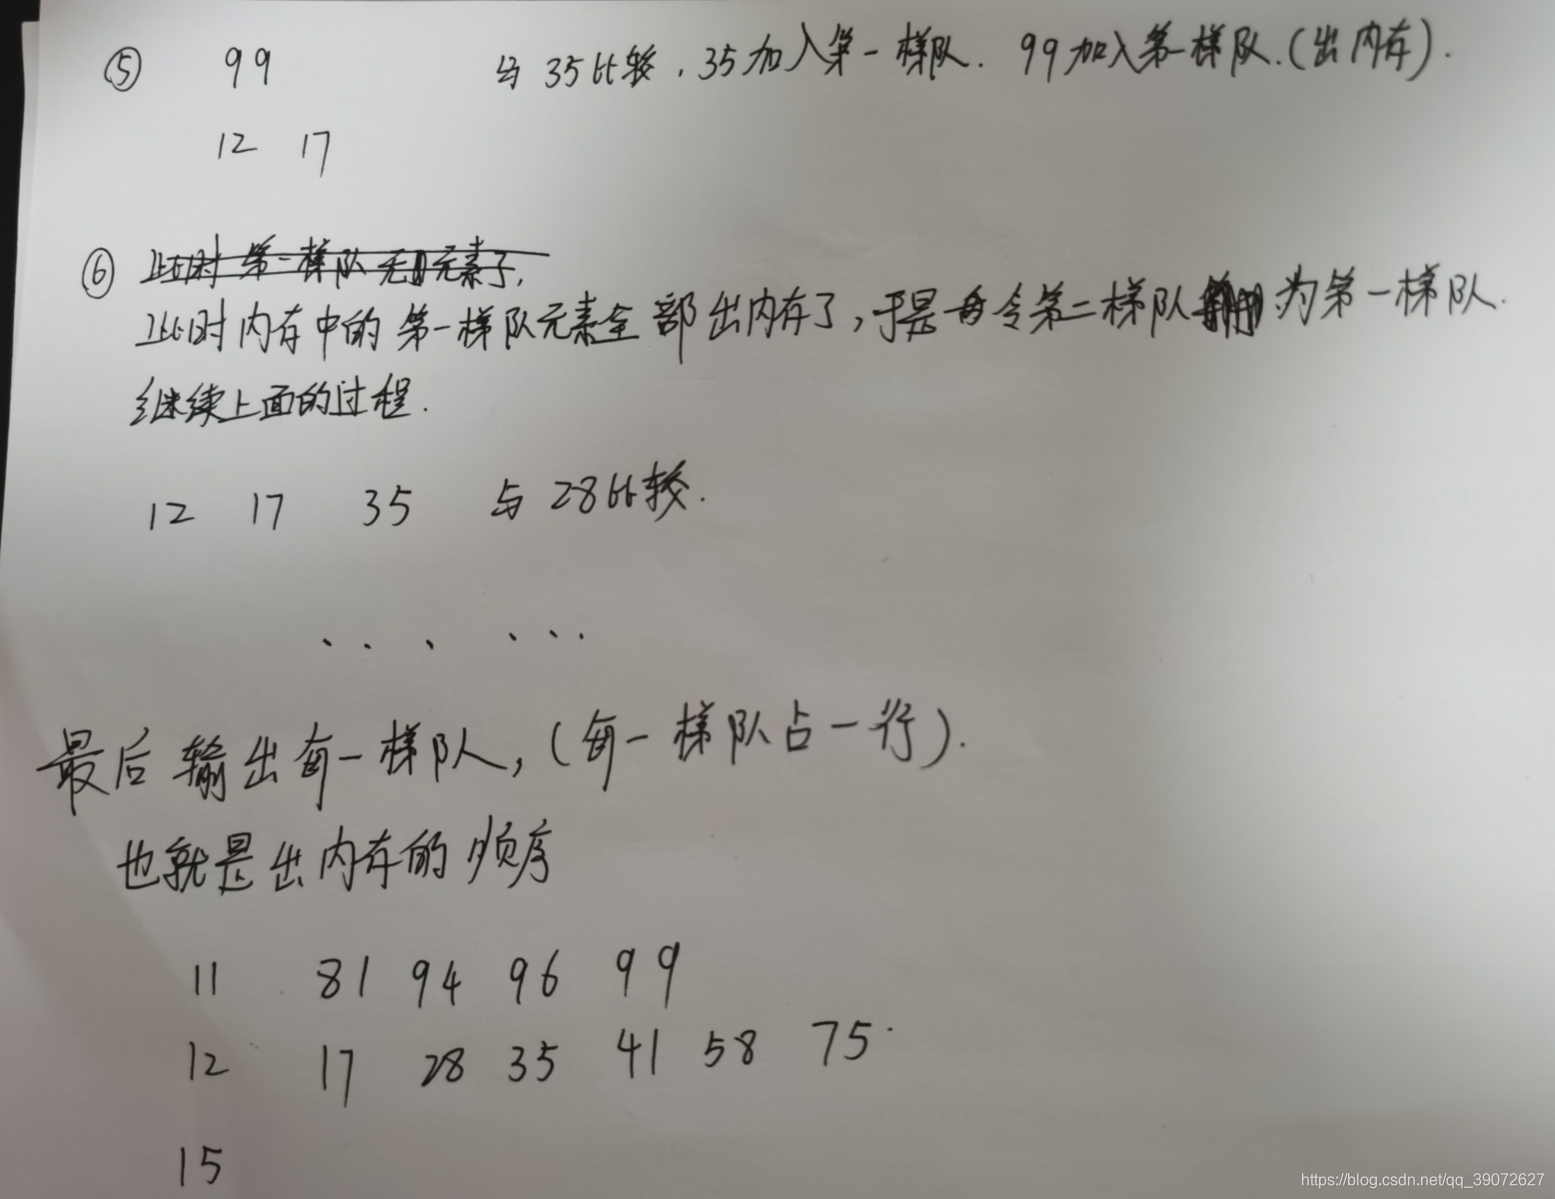 ⑤ 99 与35比较,35加入第一梯队. 99加入第一梯队.(出内存).
12 17
⑥ 此时第一梯队无元素了,
此时内存中的第一梯队元素全部出内存了,于是令第二梯队为第一梯队.
继续上面的过程.
12 17 35 与28比较.
.. . ...
最后输出每一梯队,(每一梯队占一行).
也就是出内存的顺序
11 81 94 96 99
12 17 28 35 41 58 75.
15
https://blog.csdn.net/qq_39072627